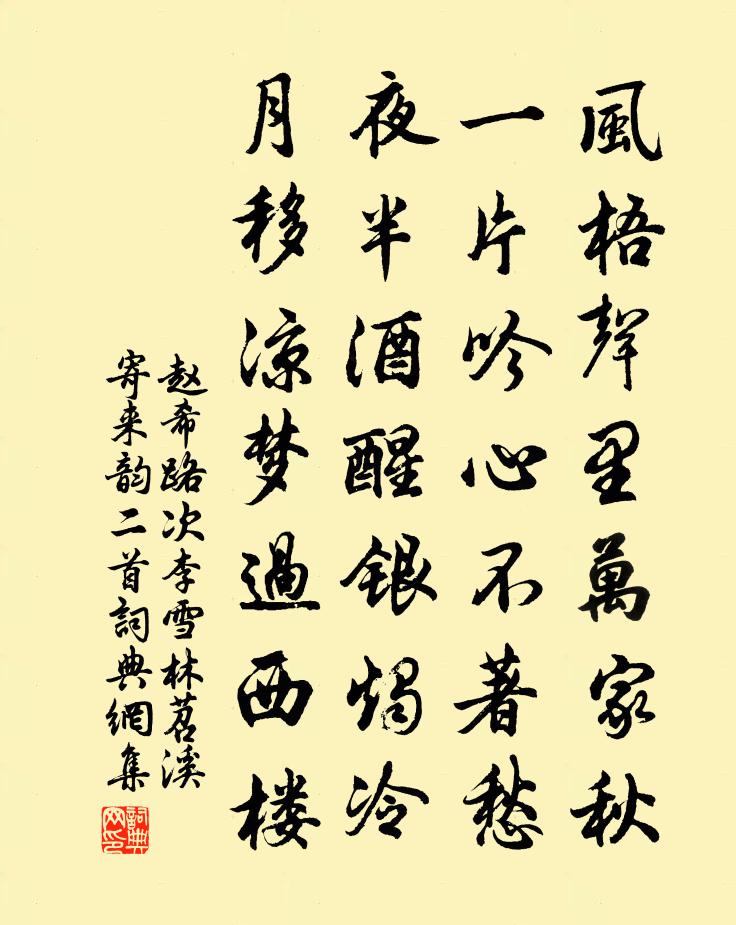 風梧聲里萬家秋
一片吟心不著愁
夜半酒醒銀燭冷
月移凉梦過西楼
赵希路次李雪林苕溪
寄来韵二首詞典網集
詞典
网印